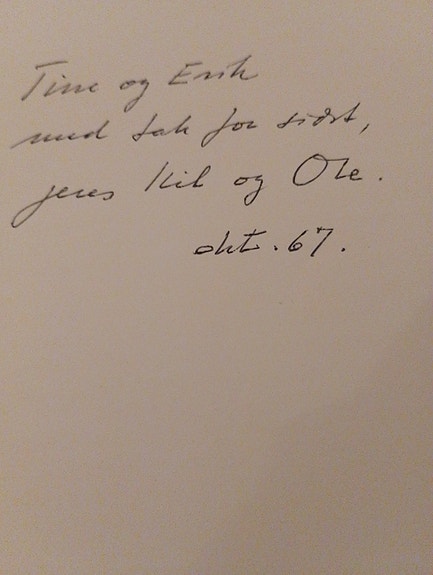 Tine og Erik
med tak for sidst,
jeres Kil og Ole.
okt. 67.